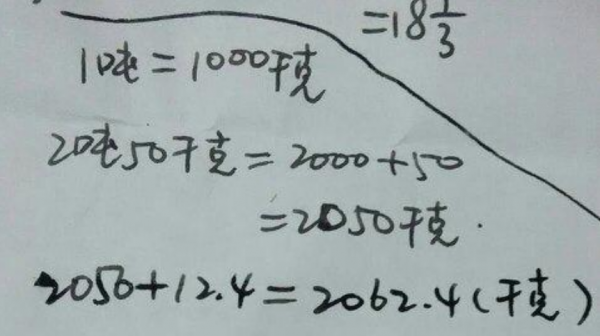 =18 1/3
1吨=1000千克
2吨50千克=2000+50
=2050千克.
2050+12.4=2062.4(千克)